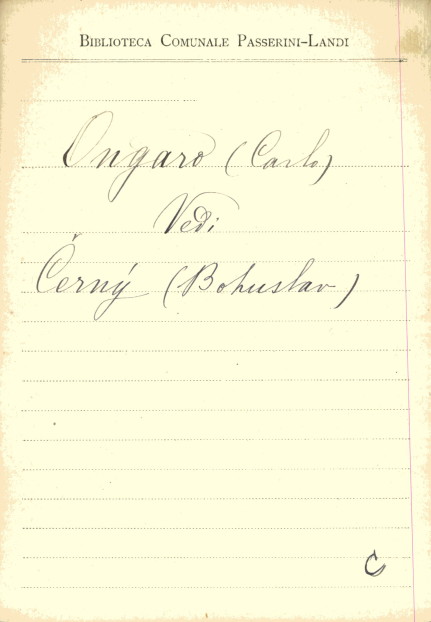 BIBLIOTECA COMUNALE PASSERINI-LANDI
Ongaro (Carlo)
Vedi
Černý (Bohuslav)
C